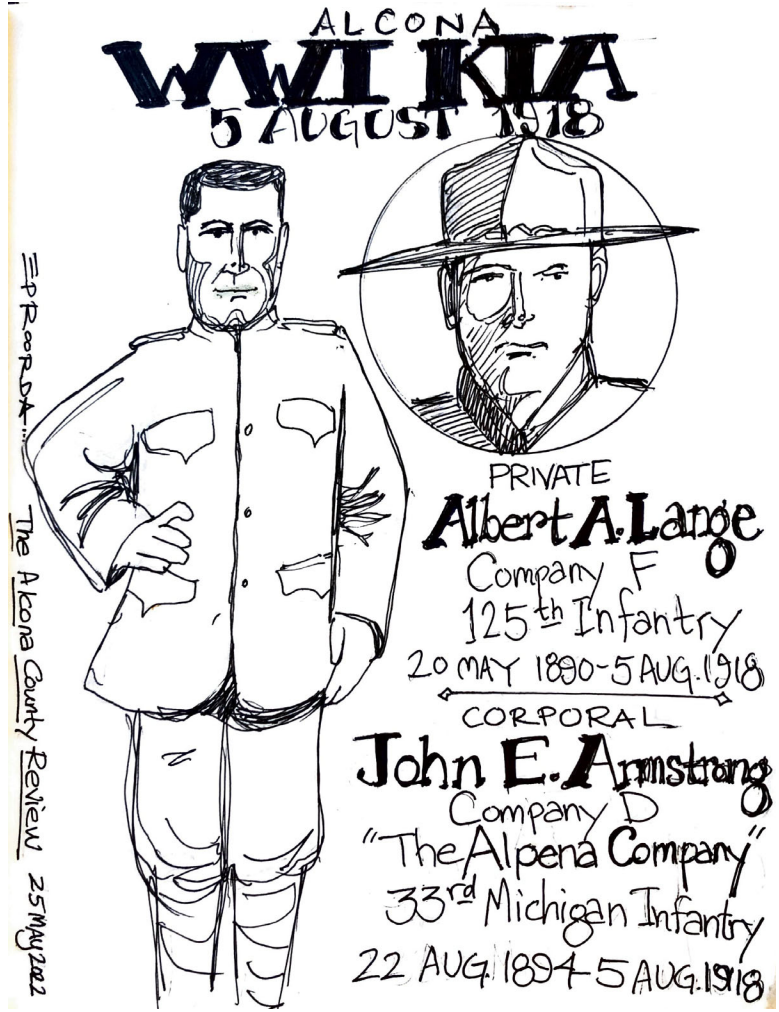 ALCONA
WWI KIA
5 AUGUST 1918
PRIVATE
Albert A. Lange
Company F
125th Infantry
20 MAY 1890-5 AUG. 1918
CORPORAL
John E. Armstrong
Company D
"The Alpena Company"
33rd Michigan Infantry
22 AUG. 1894-5 AUG. 1918
EPROORDA... The Alcona County Review 25 MAY 2022